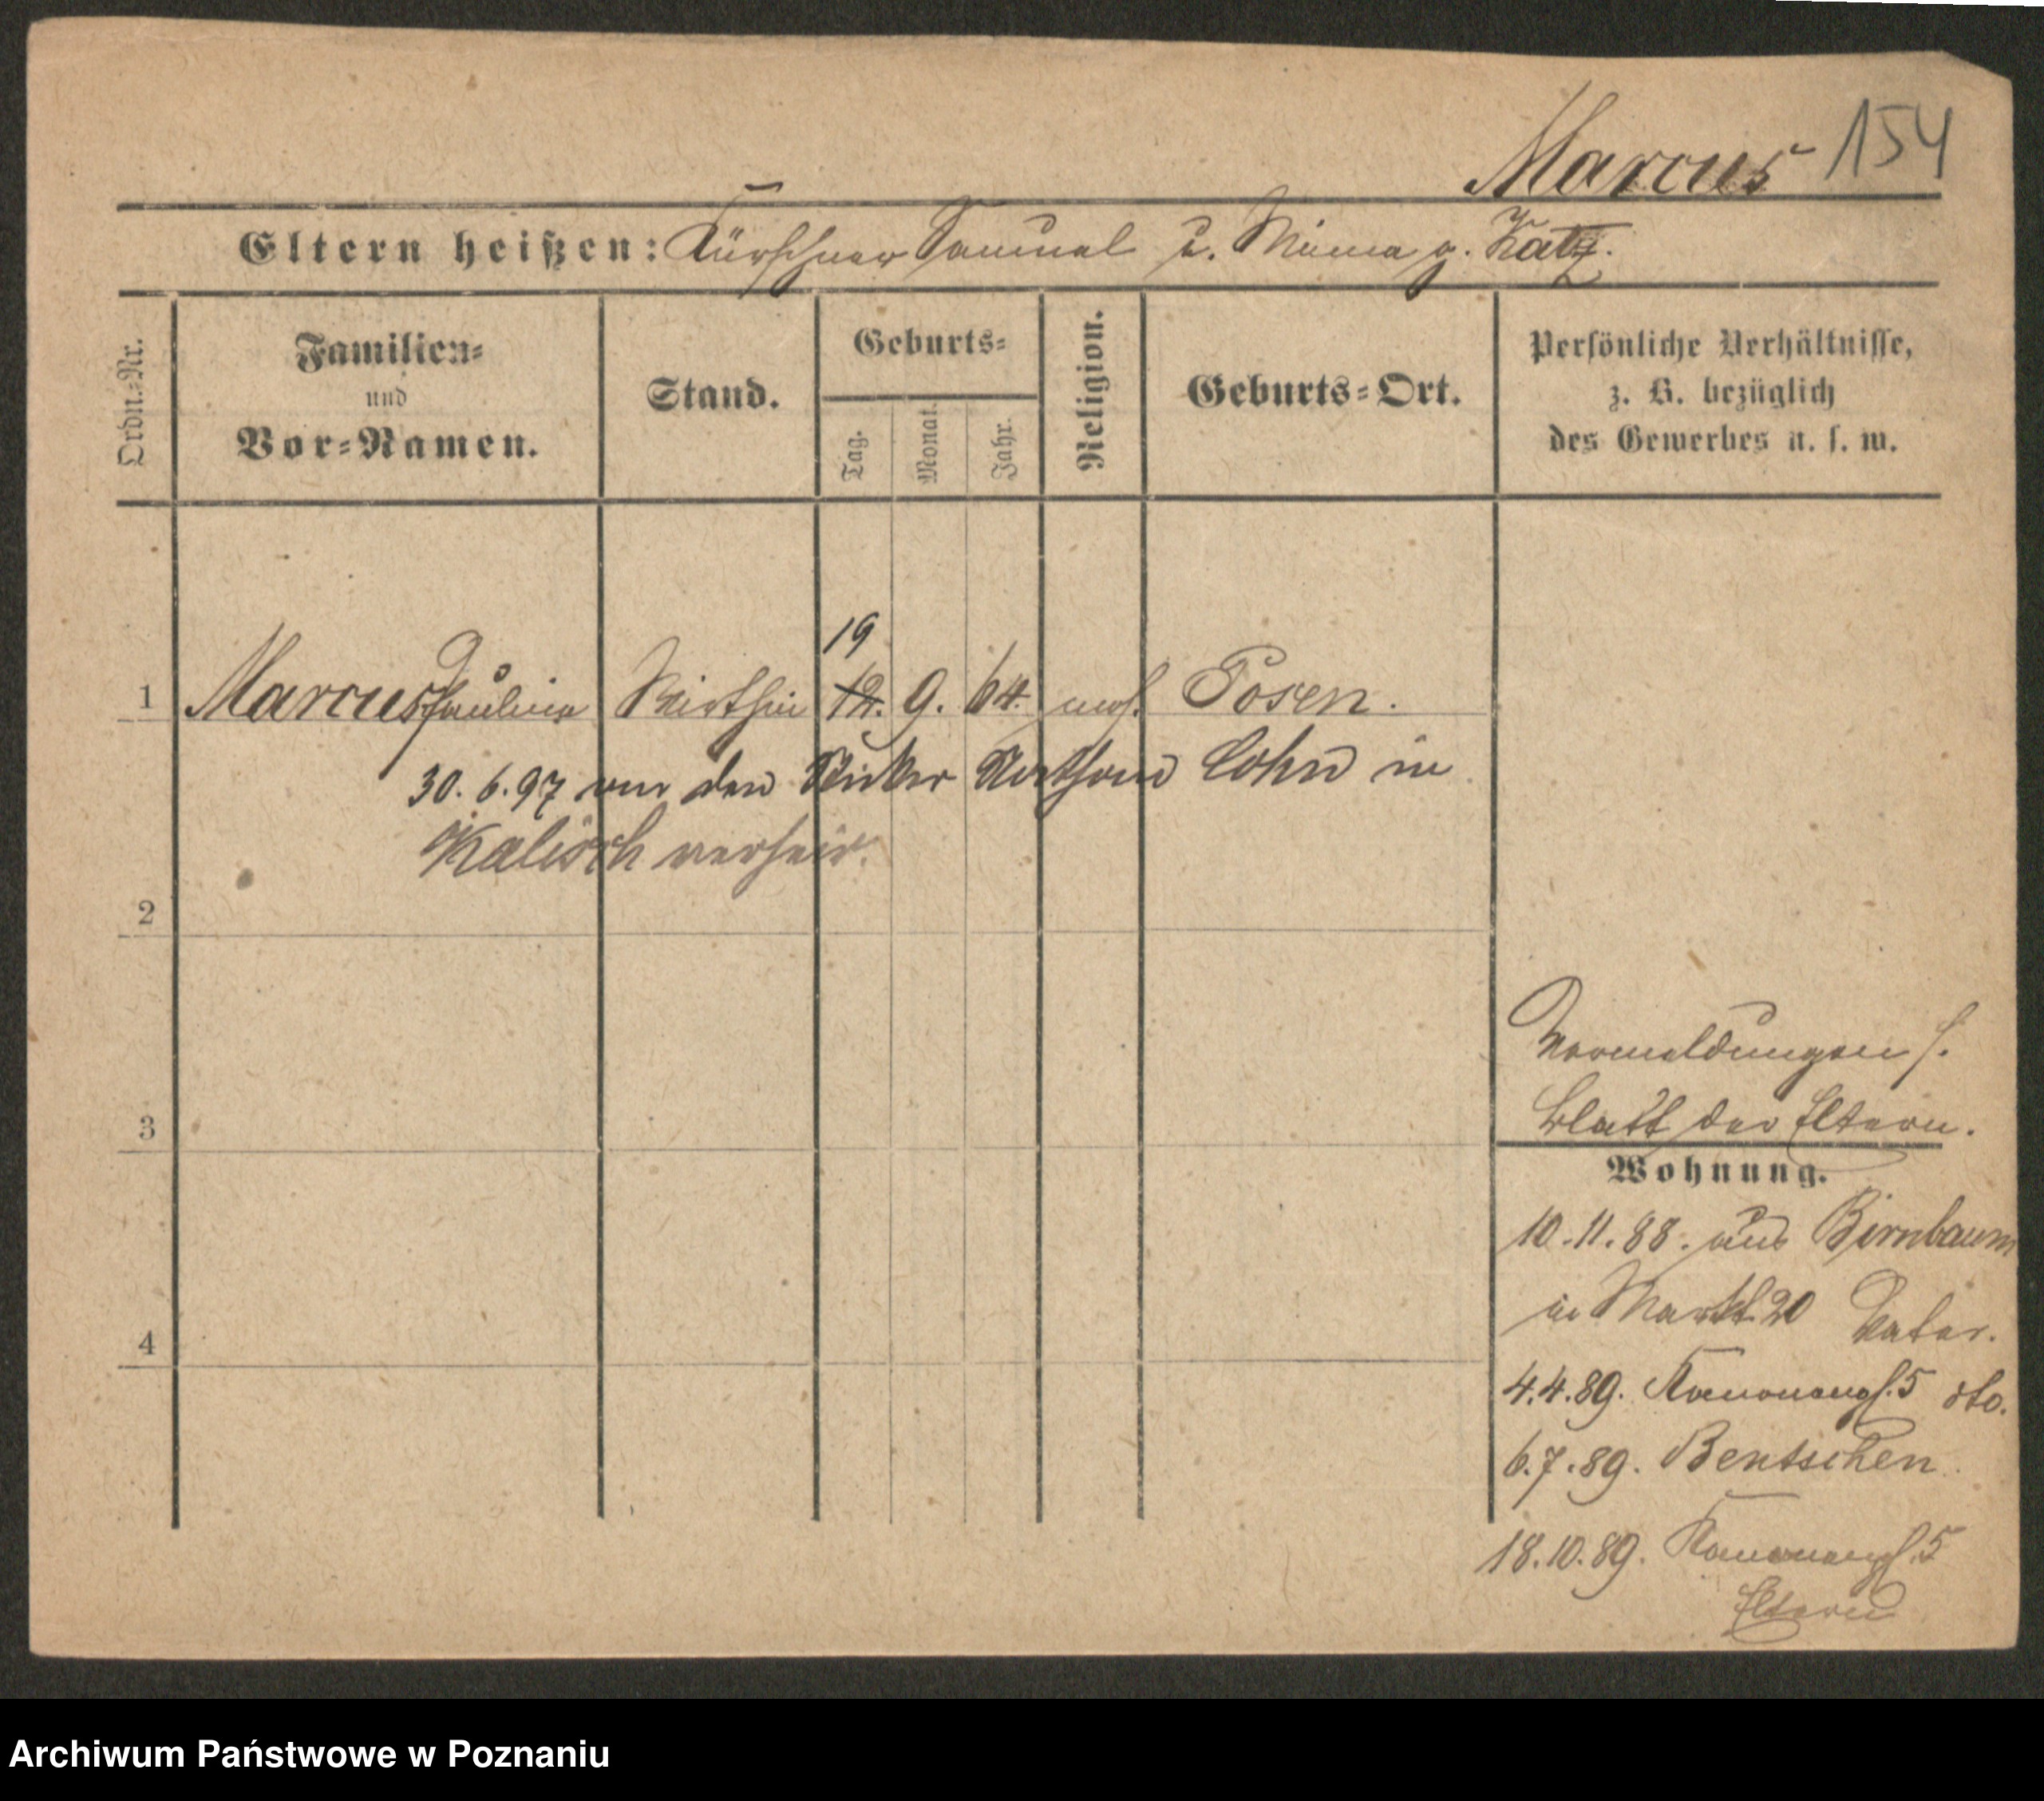 Marcus 154
Eltern heißen: Kürschner Samuel u. Minna g. Katz.
Ordn.-Nr.
Familien- und Vor-Namen.
Stand.
Geburts-
Tag. Monat. Jahr.
Religion.
Geburts-Ort.
Persönliche Verhältnisse,
z. B. bezüglich
des Gewerbes u. s. w.
19
1 Marcus Pauline Wirthin 12. 9. 64. mos. Posen.
30. 6. 97 von dem Bäcker Nathan Cohn in
Kalisch verheir.
2
3
4
Vormeldungen s.
Blatt der Eltern.
Wohnung.
10.11.88. aus Birnbaum
in Markt 20 Vater.
4.4.89. 5 dto.
6.7.89. Bentschen
18.10.89. 5
Eltern
Archiwum Państwowe w Poznaniu